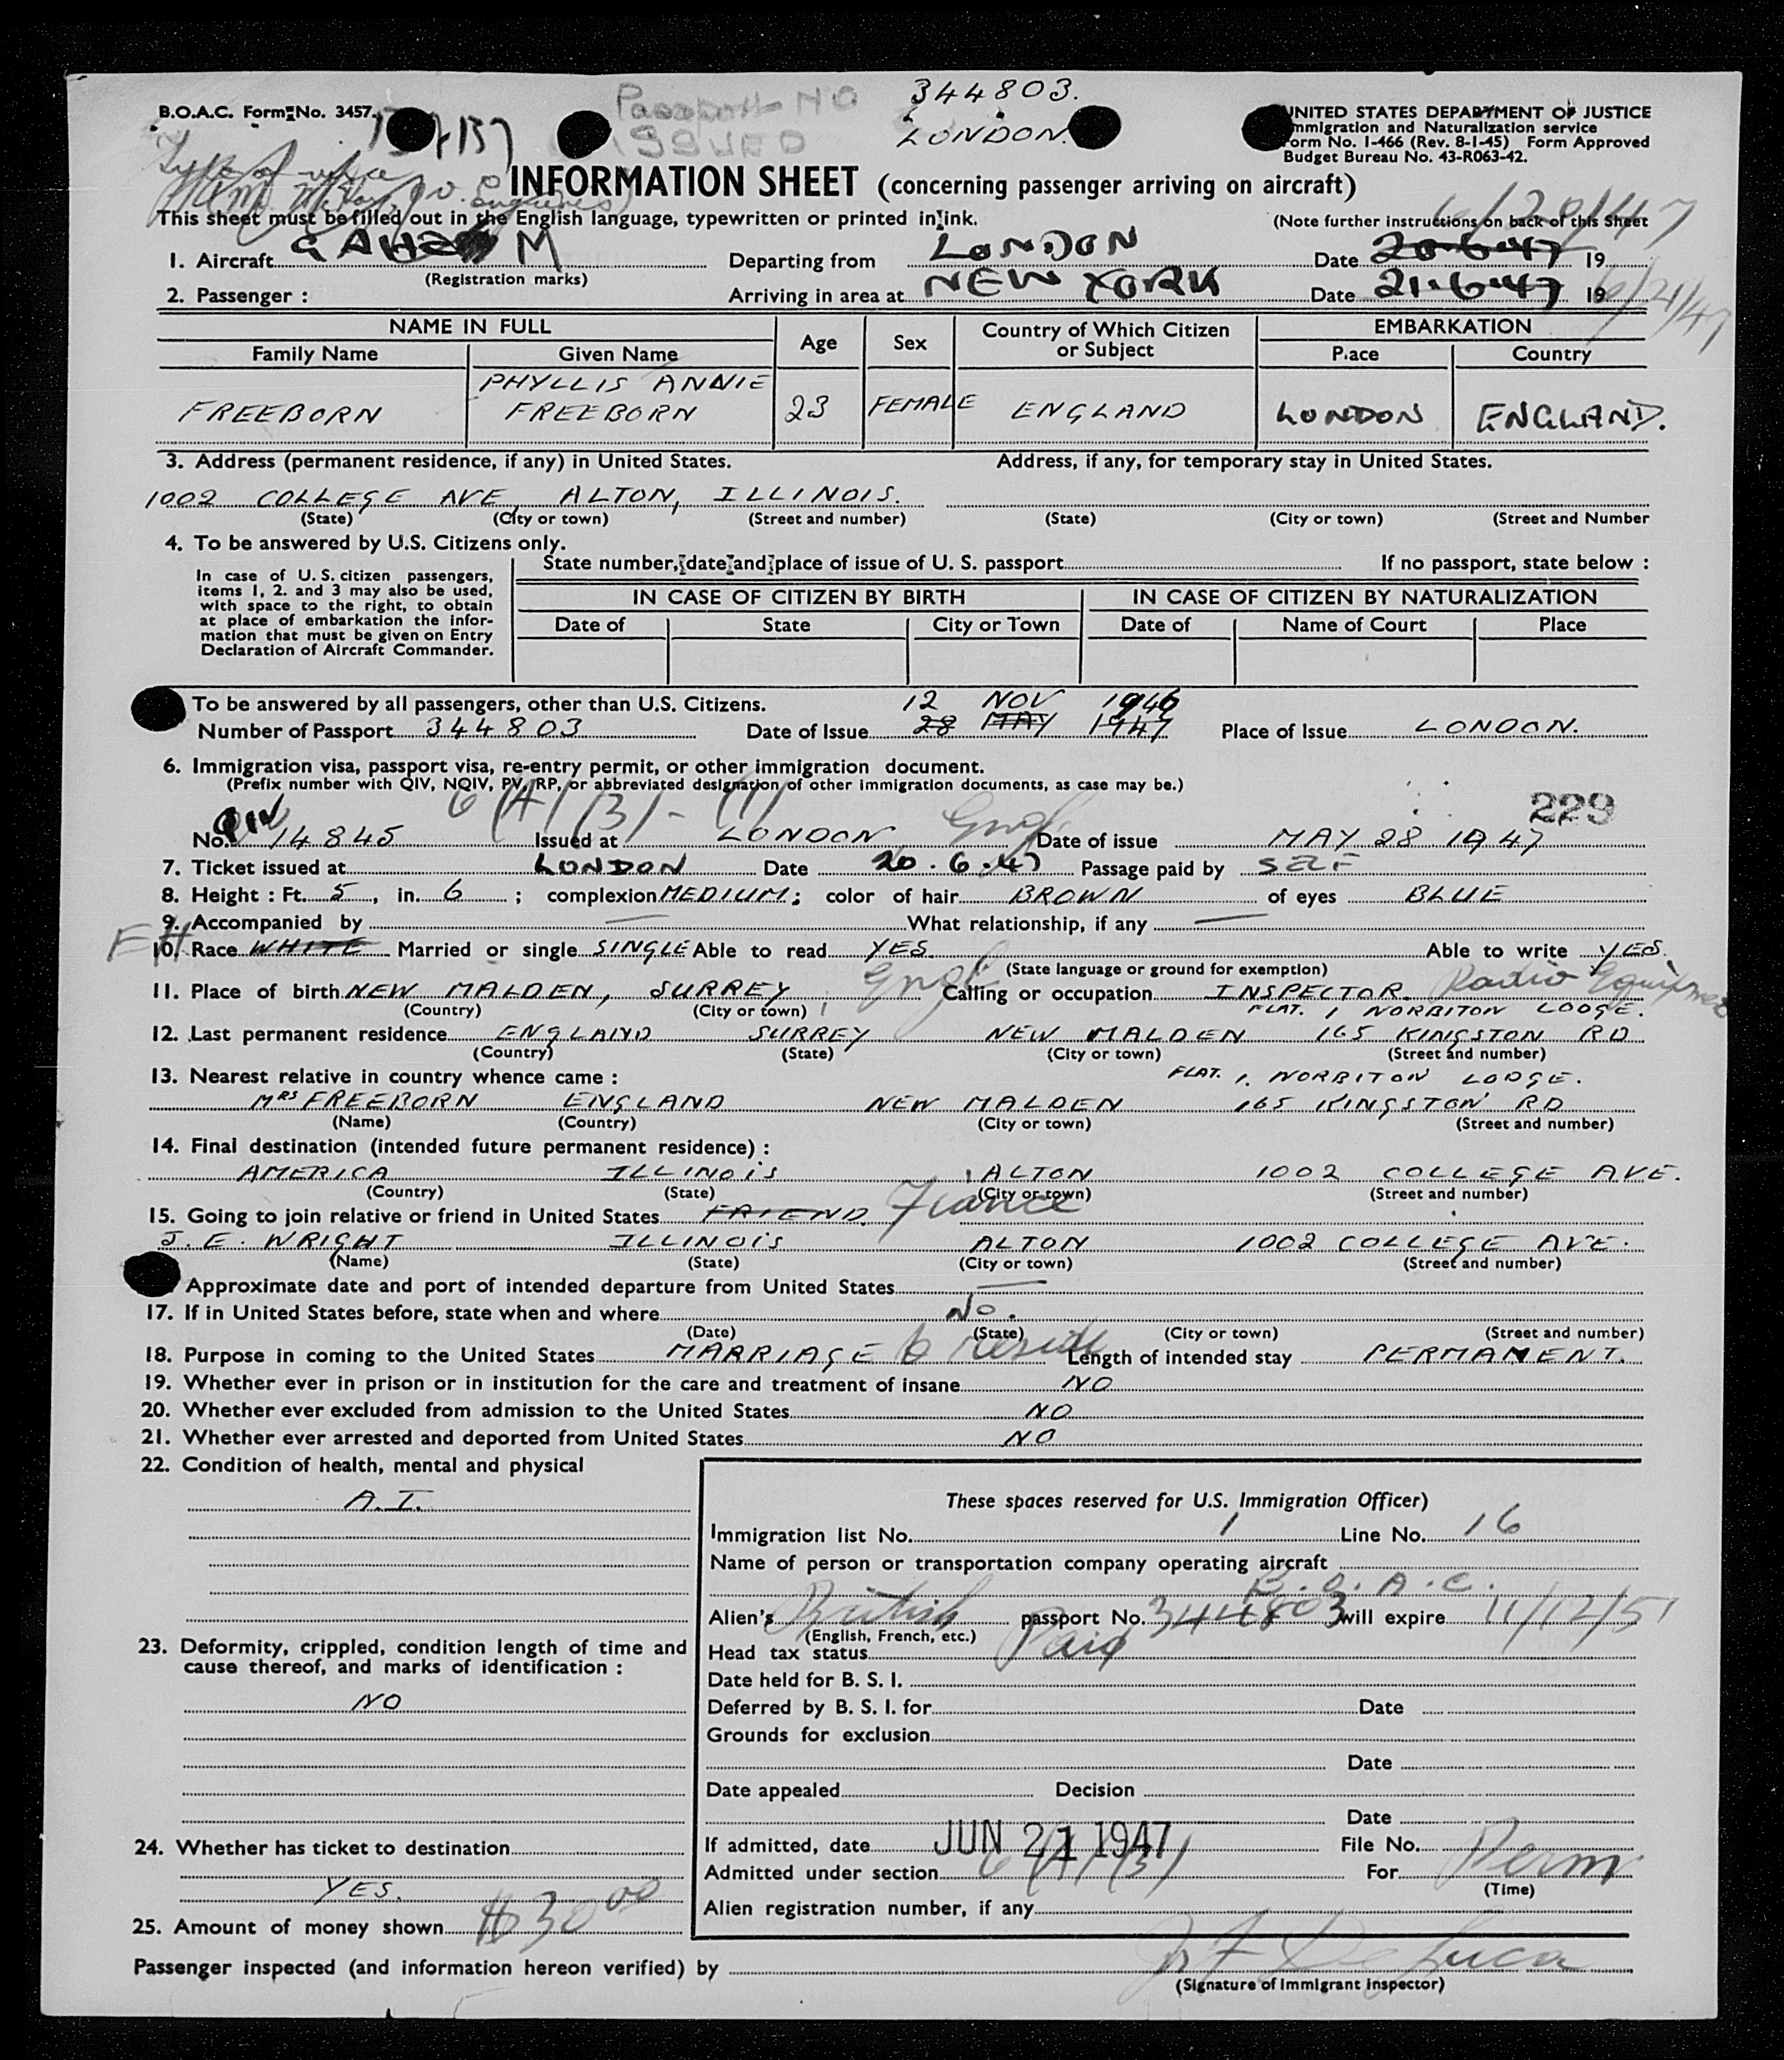 B.O.A.C. Form No. 3457.
Passport No 344803.
ISSUED LONDON.
UNITED STATES DEPARTMENT OF JUSTICE
Immigration and Naturalization service
Form No. I-466 (Rev. 8-1-45) Form Approved
Budget Bureau No. 43-R063-42.
INFORMATION SHEET (concerning passenger arriving on aircraft)
This sheet must be filled out in the English language, typewritten or printed in ink. (Note further instructions on back of this Sheet
6/20/47
1. Aircraft GAH M Departing from LONDON Date 20·6·47 19
(Registration marks)
2. Passenger : Arriving in area at NEW YORK Date 21·6·47 19 6/21/47
NAME IN FULL Age Sex Country of Which Citizen or Subject EMBARKATION
Family Name Given Name Place Country
PHYLLIS ANNIE
FREEBORN FREEBORN 23 FEMALE ENGLAND LONDON ENGLAND.
3. Address (permanent residence, if any) in United States. Address, if any, for temporary stay in United States.
1002 COLLEGE AVE, ALTON, ILLINOIS.
(State) (City or town) (Street and number) (State) (City or town) (Street and Number
4. To be answered by U.S. Citizens only.
State number, date and place of issue of U. S. passport If no passport, state below :
In case of U. S. citizen passengers,
items 1, 2. and 3 may also be used,
with space to the right, to obtain
at place of embarkation the infor-
mation that must be given on Entry
Declaration of Aircraft Commander.
IN CASE OF CITIZEN BY BIRTH IN CASE OF CITIZEN BY NATURALIZATION
Date of State City or Town Date of Name of Court Place
To be answered by all passengers, other than U.S. Citizens. 12 NOV 1946
Number of Passport 344803 Date of Issue 28 MAY 1947 Place of Issue LONDON.
6. Immigration visa, passport visa, re-entry permit, or other immigration document.
(Prefix number with QIV, NQIV, PV, RP, or abbreviated designation of other immigration documents, as case may be.)
229
No. QIV 14845 Issued at LONDON Date of issue MAY 28 1947
7. Ticket issued at LONDON Date 20·6·47 Passage paid by SELF
8. Height : Ft. 5, in. 6 ; complexion MEDIUM; color of hair BROWN of eyes BLUE
9. Accompanied by — What relationship, if any —
10. Race WHITE Married or single SINGLE Able to read YES. Able to write YES.
(State language or ground for exemption)
11. Place of birth NEW MALDEN, SURREY Engl Calling or occupation INSPECTOR. Radio
(Country) (City or town) FLAT. 1 NORBITON LODGE.
12. Last permanent residence ENGLAND SURREY NEW MALDEN 165 KINGSTON RD
(Country) (State) (City or town) (Street and number)
13. Nearest relative in country whence came : FLAT. 1. NORBITON LODGE.
MRS FREEBORN ENGLAND NEW MALDEN 165 KINGSTON RD
(Name) (Country) (City or town) (Street and number)
14. Final destination (intended future permanent residence) :
AMERICA ILLINOIS ALTON 1002 COLLEGE AVE.
(Country) (State) (City or town) (Street and number)
15. Going to join relative or friend in United States FRIEND. Fiance
J. E. WRIGHT ILLINOIS ALTON 1002 COLLEGE AVE.
(Name) (State) (City or town) (Street and number)
Approximate date and port of intended departure from United States —
17. If in United States before, state when and where NO.
(Date) (State) (City or town) (Street and number)
18. Purpose in coming to the United States MARRIAGE to reside Length of intended stay PERMANENT.
19. Whether ever in prison or in institution for the care and treatment of insane NO
20. Whether ever excluded from admission to the United States NO
21. Whether ever arrested and deported from United States NO
22. Condition of health, mental and physical
A.I.
23. Deformity, crippled, condition length of time and
cause thereof, and marks of identification :
NO
24. Whether has ticket to destination
YES.
25. Amount of money shown $30 00
These spaces reserved for U.S. Immigration Officer)
Immigration list No. 1 Line No. 16
Name of person or transportation company operating aircraft
B.O.A.C.
Alien's British passport No. 344803 will expire 11/12/51
(English, French, etc.)
Head tax status Paid
Date held for B. S. I.
Deferred by B. S. I. for Date
Grounds for exclusion
Date
Date appealed Decision
Date
If admitted, date JUN 21 1947 File No.
Admitted under section For Perm
(Time)
Alien registration number, if any
Passenger inspected (and information hereon verified) by
(Signature of Immigrant Inspector)